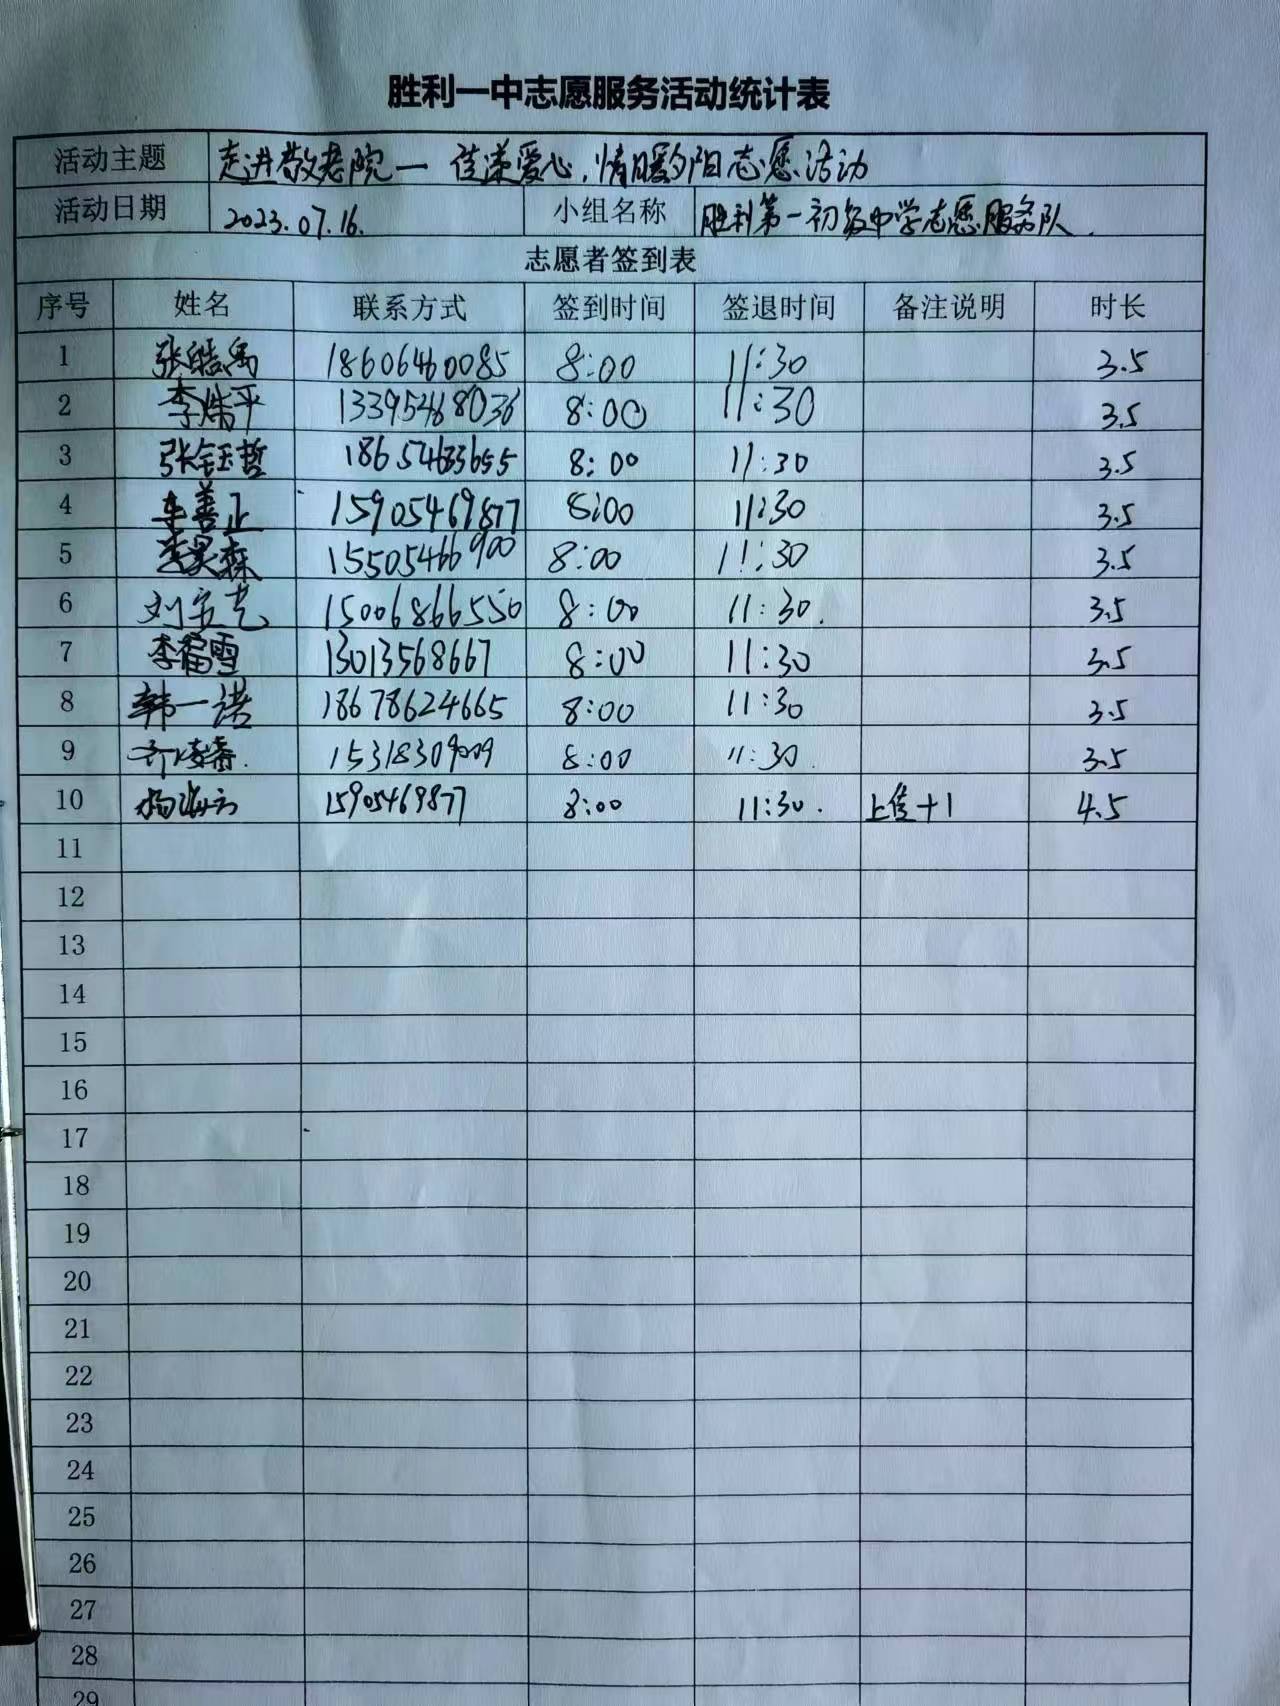 胜利一中志愿服务活动统计表
活动主题 走进敬老院一传递爱心,情暖夕阳志愿活动
活动日期 2023.07.16. 小组名称 胜利第一初级中学志愿服务队.
志愿者签到表
序号 姓名 联系方式 签到时间 签退时间 备注说明 时长
1 张皓禹 18606460085 8:00 11:30 3.5
2 李炜平 13395468036 8:00 11:30 3.5
3 张钰哲 18654633655 8:00 11:30 3.5
4 车善正 15905469877 8:00 11:30 3.5
5 李昊森 15505466900 8:00 11:30 3.5
6 刘 15006866550 8:00 11:30. 3.5
7 李 雪 13013568667 8:00 11:30 3.5
8 韩一诺 18678624665 8:00 11:30 3.5
9 齐 15318309009 8:00 11:30. 3.5
10 杨 15905469877 8:00 11:30. 上传+1 4.5
11
12
13
14
15
16
17
18
19
20
21
22
23
24
25
26
27
28
29